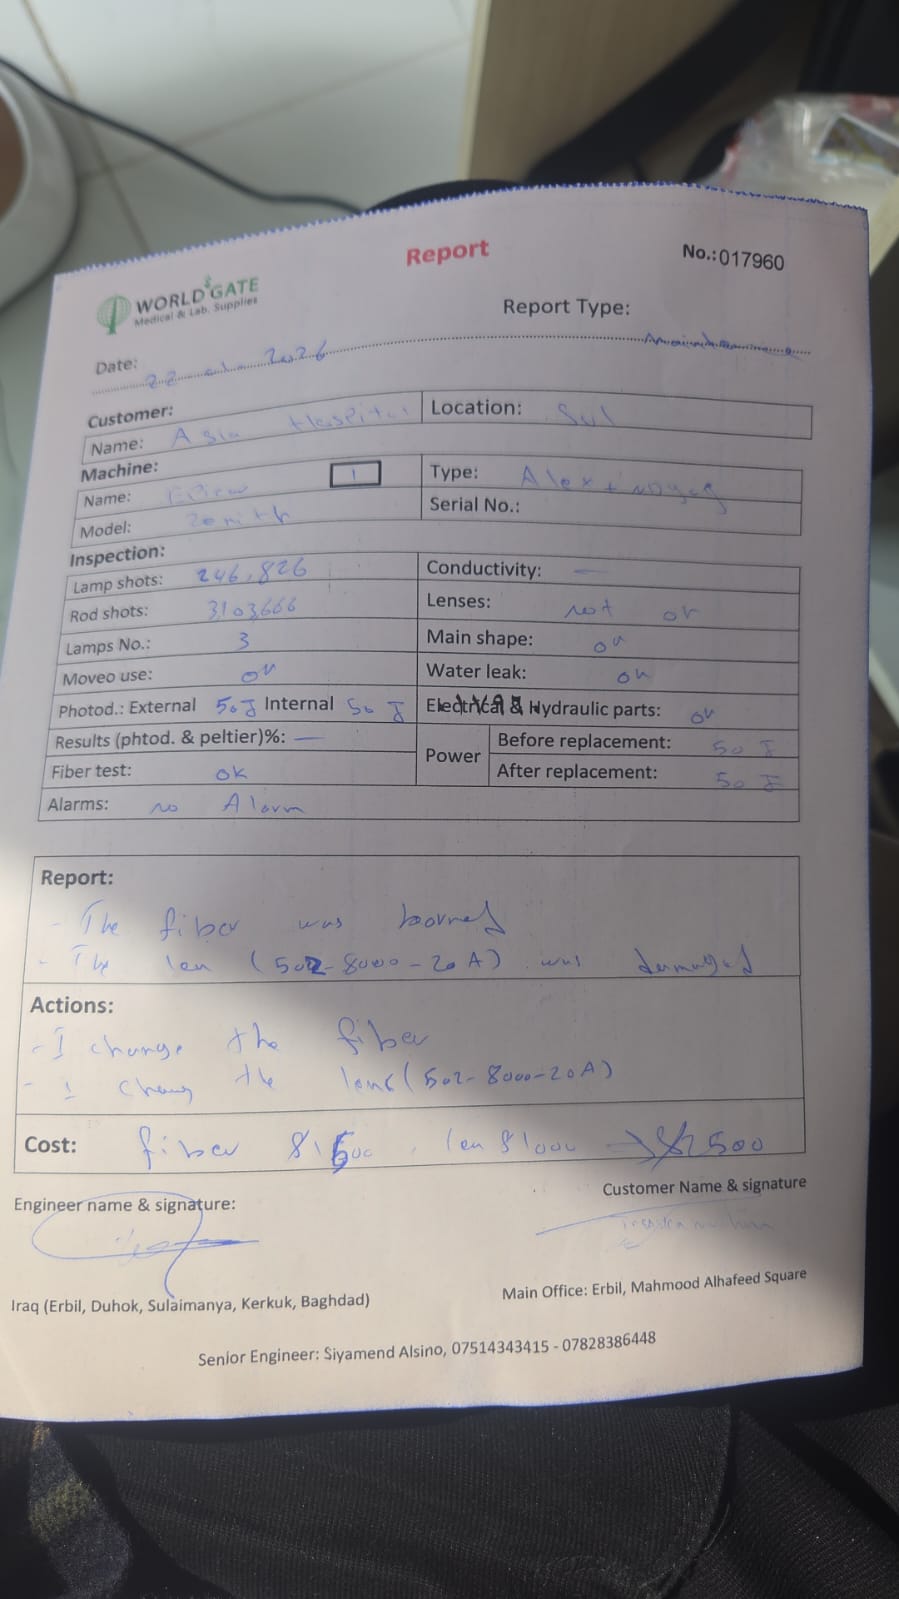 Report
No.:017960
WORLD GATE
Medical & Lab. Supplies
Report Type:
Date: 2026
Customer:
Name: Asia Hospital
Location: Sul
Machine:
Name: 1
Type: Alex +
Model: Zenith
Serial No.:
Inspection:
Lamp shots: 246,826
Conductivity: —
Rod shots: 3103666
Lenses: not ok
Lamps No.: 3
Main shape: ok
Moveo use: ok
Water leak: ok
Photod.: External 50 J Internal 50 J
Electrical & Hydraulic parts: ok
Results (phtod. & peltier)%: —
Power
Before replacement: 50 J
Fiber test: ok
After replacement: 50 J
Alarms: no Alarm
Report:
- The fiber was borned
- The len (502-8000-20A) was damaged
Actions:
- I change the fiber
- I chang the lens (502-8000-20A)
Cost: fiber $1500, len $1000 → $2500
Engineer name & signature:
Customer Name & signature
Iraq (Erbil, Duhok, Sulaimanya, Kerkuk, Baghdad)
Main Office: Erbil, Mahmood Alhafeed Square
Senior Engineer: Siyamend Alsino, 07514343415 - 07828386448